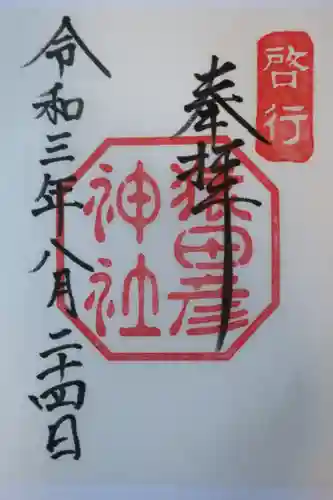 啓行
奉拝
猿田彦
神社
令和三年八月二十四日